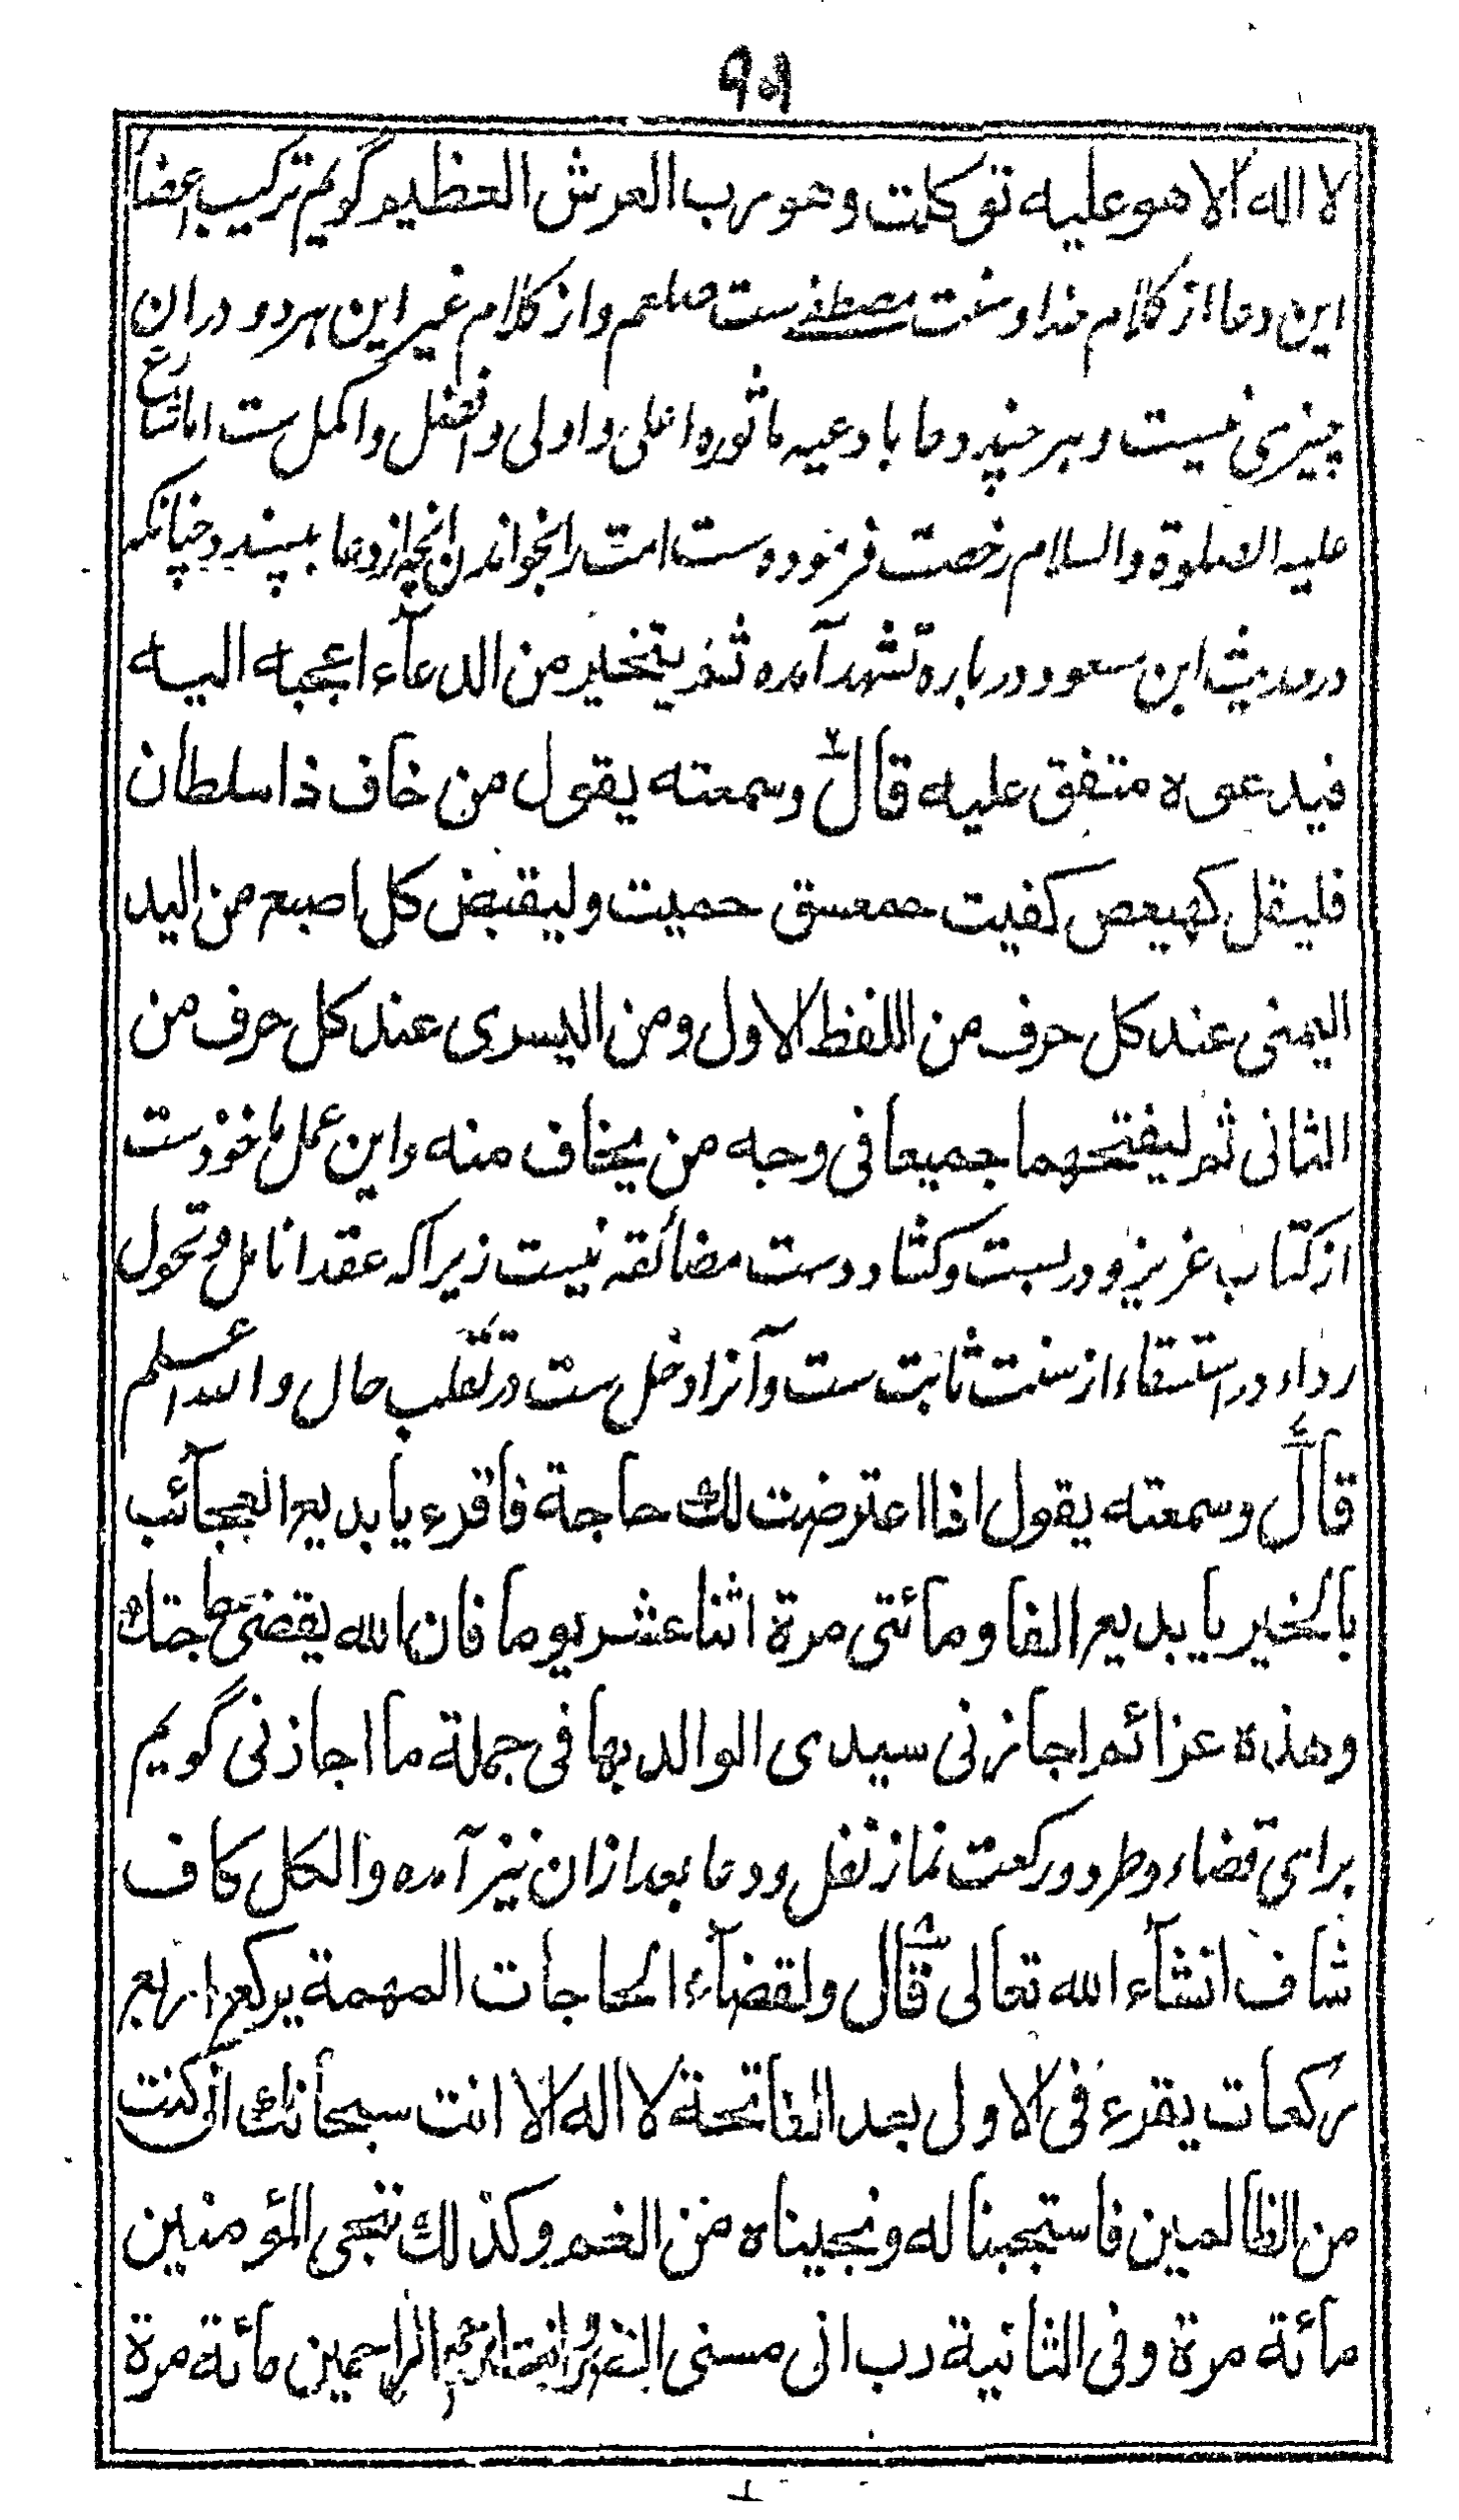 لا اله الا هو عليه توكلت وهو رب العرش العظيم گويم تركيب اعضا
اين دعا از كلام خدا و سنت مصطفے ست صلعم و از كلام غير اين هر دو دران
چيزى نيست و هر چند دعا بادعيه ماثوره اعلى و اولى و افضل و اكمل ست اما شارع
عليه الصلوة والسلام رخصت فرموده ست امت را بخواندن انچه از دعا بپسندد چنانكه
در حديث ابن مسعود در باره تشهد آمده ثم يتخير من الدعآء اعجبه اليه
فيدعوه متفق عليه قال وسمعته يقول من خاف ذا سلطان
فليقل كهيعص كفيت حمعسق حميت وليقبض كل اصبع من اليد
اليمنى عند كل حرف من اللفظ الاول ومن اليسرى عند كل حرف من
الثانى ثم ليفتحهما جميعا فى وجه من يخاف منه و اين عمل ماخوذ ست
از كتاب عزيز و در بست و كشاد دست مضائقه نيست زيرا كه عقد انامل و تحول
رداء در استسقاء از سنت ثابت ست و آنرا دخل ست در تقلب حال و الله اعلم
قال وسمعته يقول اذا اعترضت لك حاجة فاقرء يا بديع العجآئب
بالخير يا بديع الفا ومائتى مرة اثنا عشر يوما فان الله يقضى حاجتك
وهذه عزائم اجازنى سيدى الوالد بها فى جملة ما اجازنى گويم
براى قضاء وطر دو ركعت نماز نفل و دعا بعد ازان نيز آمده والكل كاف
شاف انشآء الله تعالى قال ولقضآء الحاجات المهمة يركع اربع
ركعات يقرء فى الاولى بعد الفاتحة لا اله الا انت سبحانك انى كنت
من الظالمين فاستجبنا له ونجيناه من الغم وكذلك ننجى المؤمنين
مائة مرة وفى الثانية رب انى مسنى الضر وانت ارحم الراحمين مائة مرة